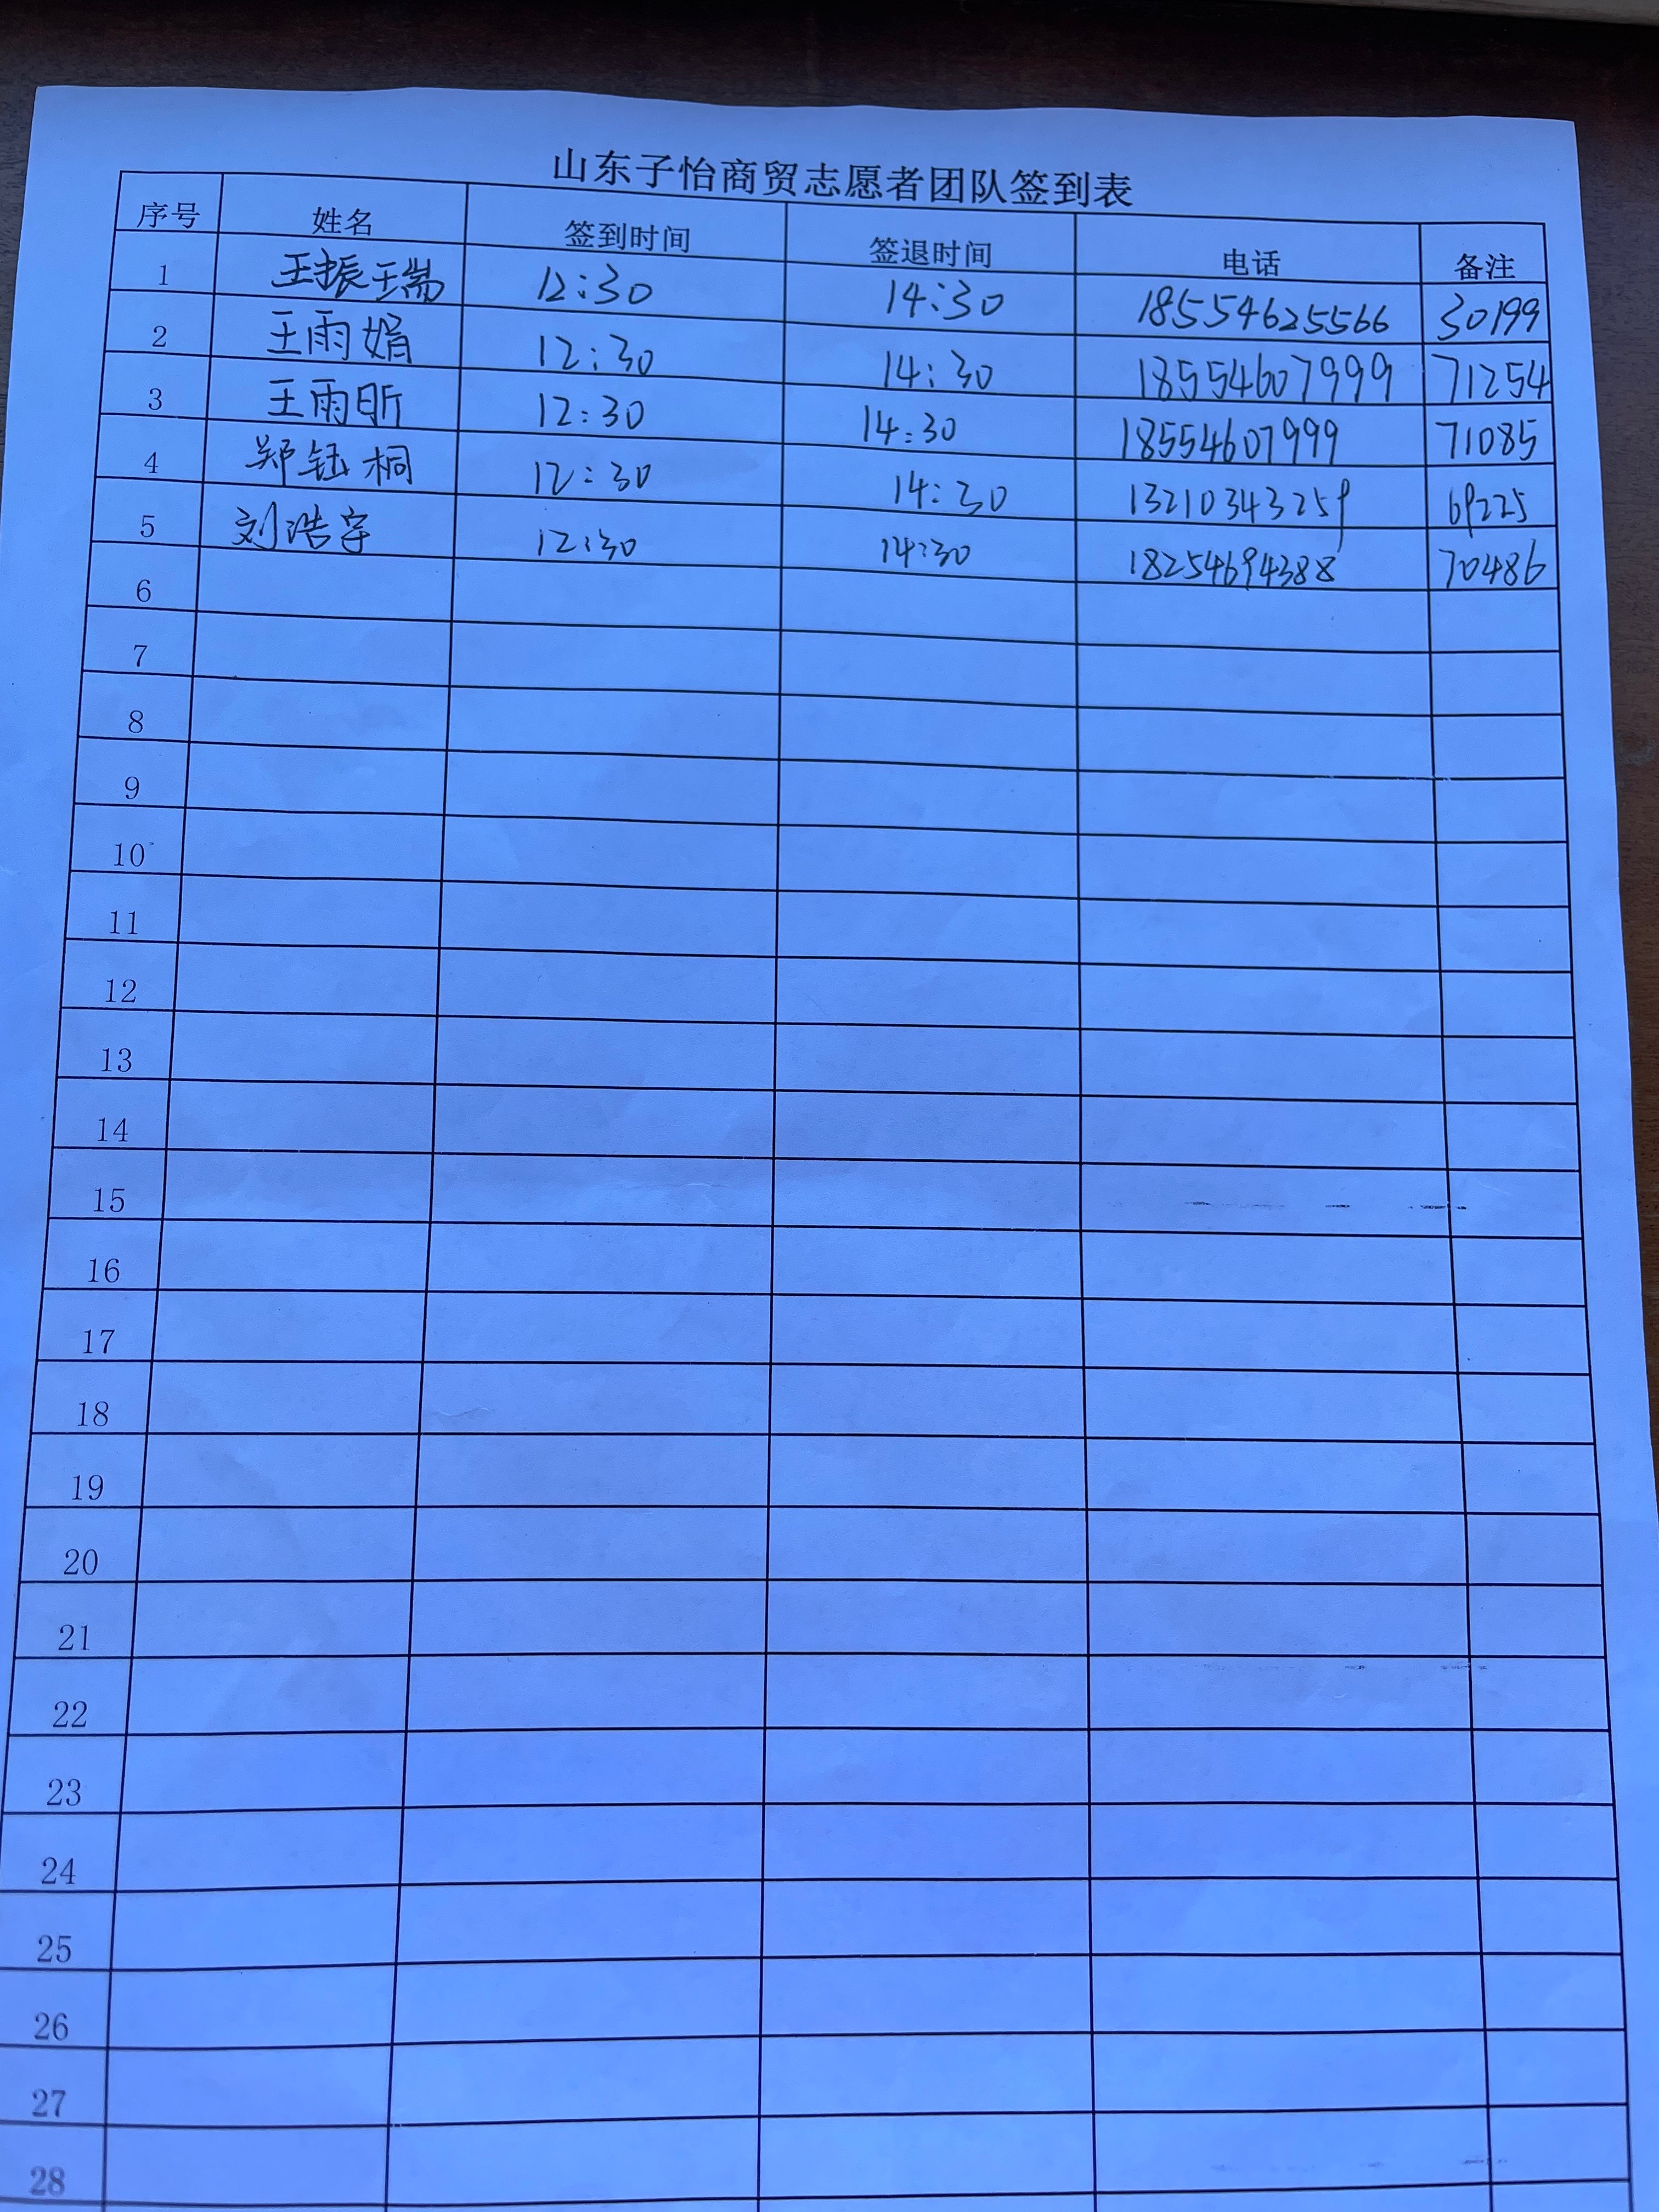 山东子怡商贸志愿者团队签到表
序号 姓名 签到时间 签退时间 电话 备注
1 王振瑞 12:30 14:30 18554625566 30199
2 王雨娟 12:30 14:30 18554607999 71254
3 王雨昕 12:30 14:30 18554607999 71085
4 郑钰桐 12:30 14:30 13210343259 69225
5 刘浩宇 12:30 14:30 18254694388 70486
6
7
8
9
10
11
12
13
14
15
16
17
18
19
20
21
22
23
24
25
26
27
28